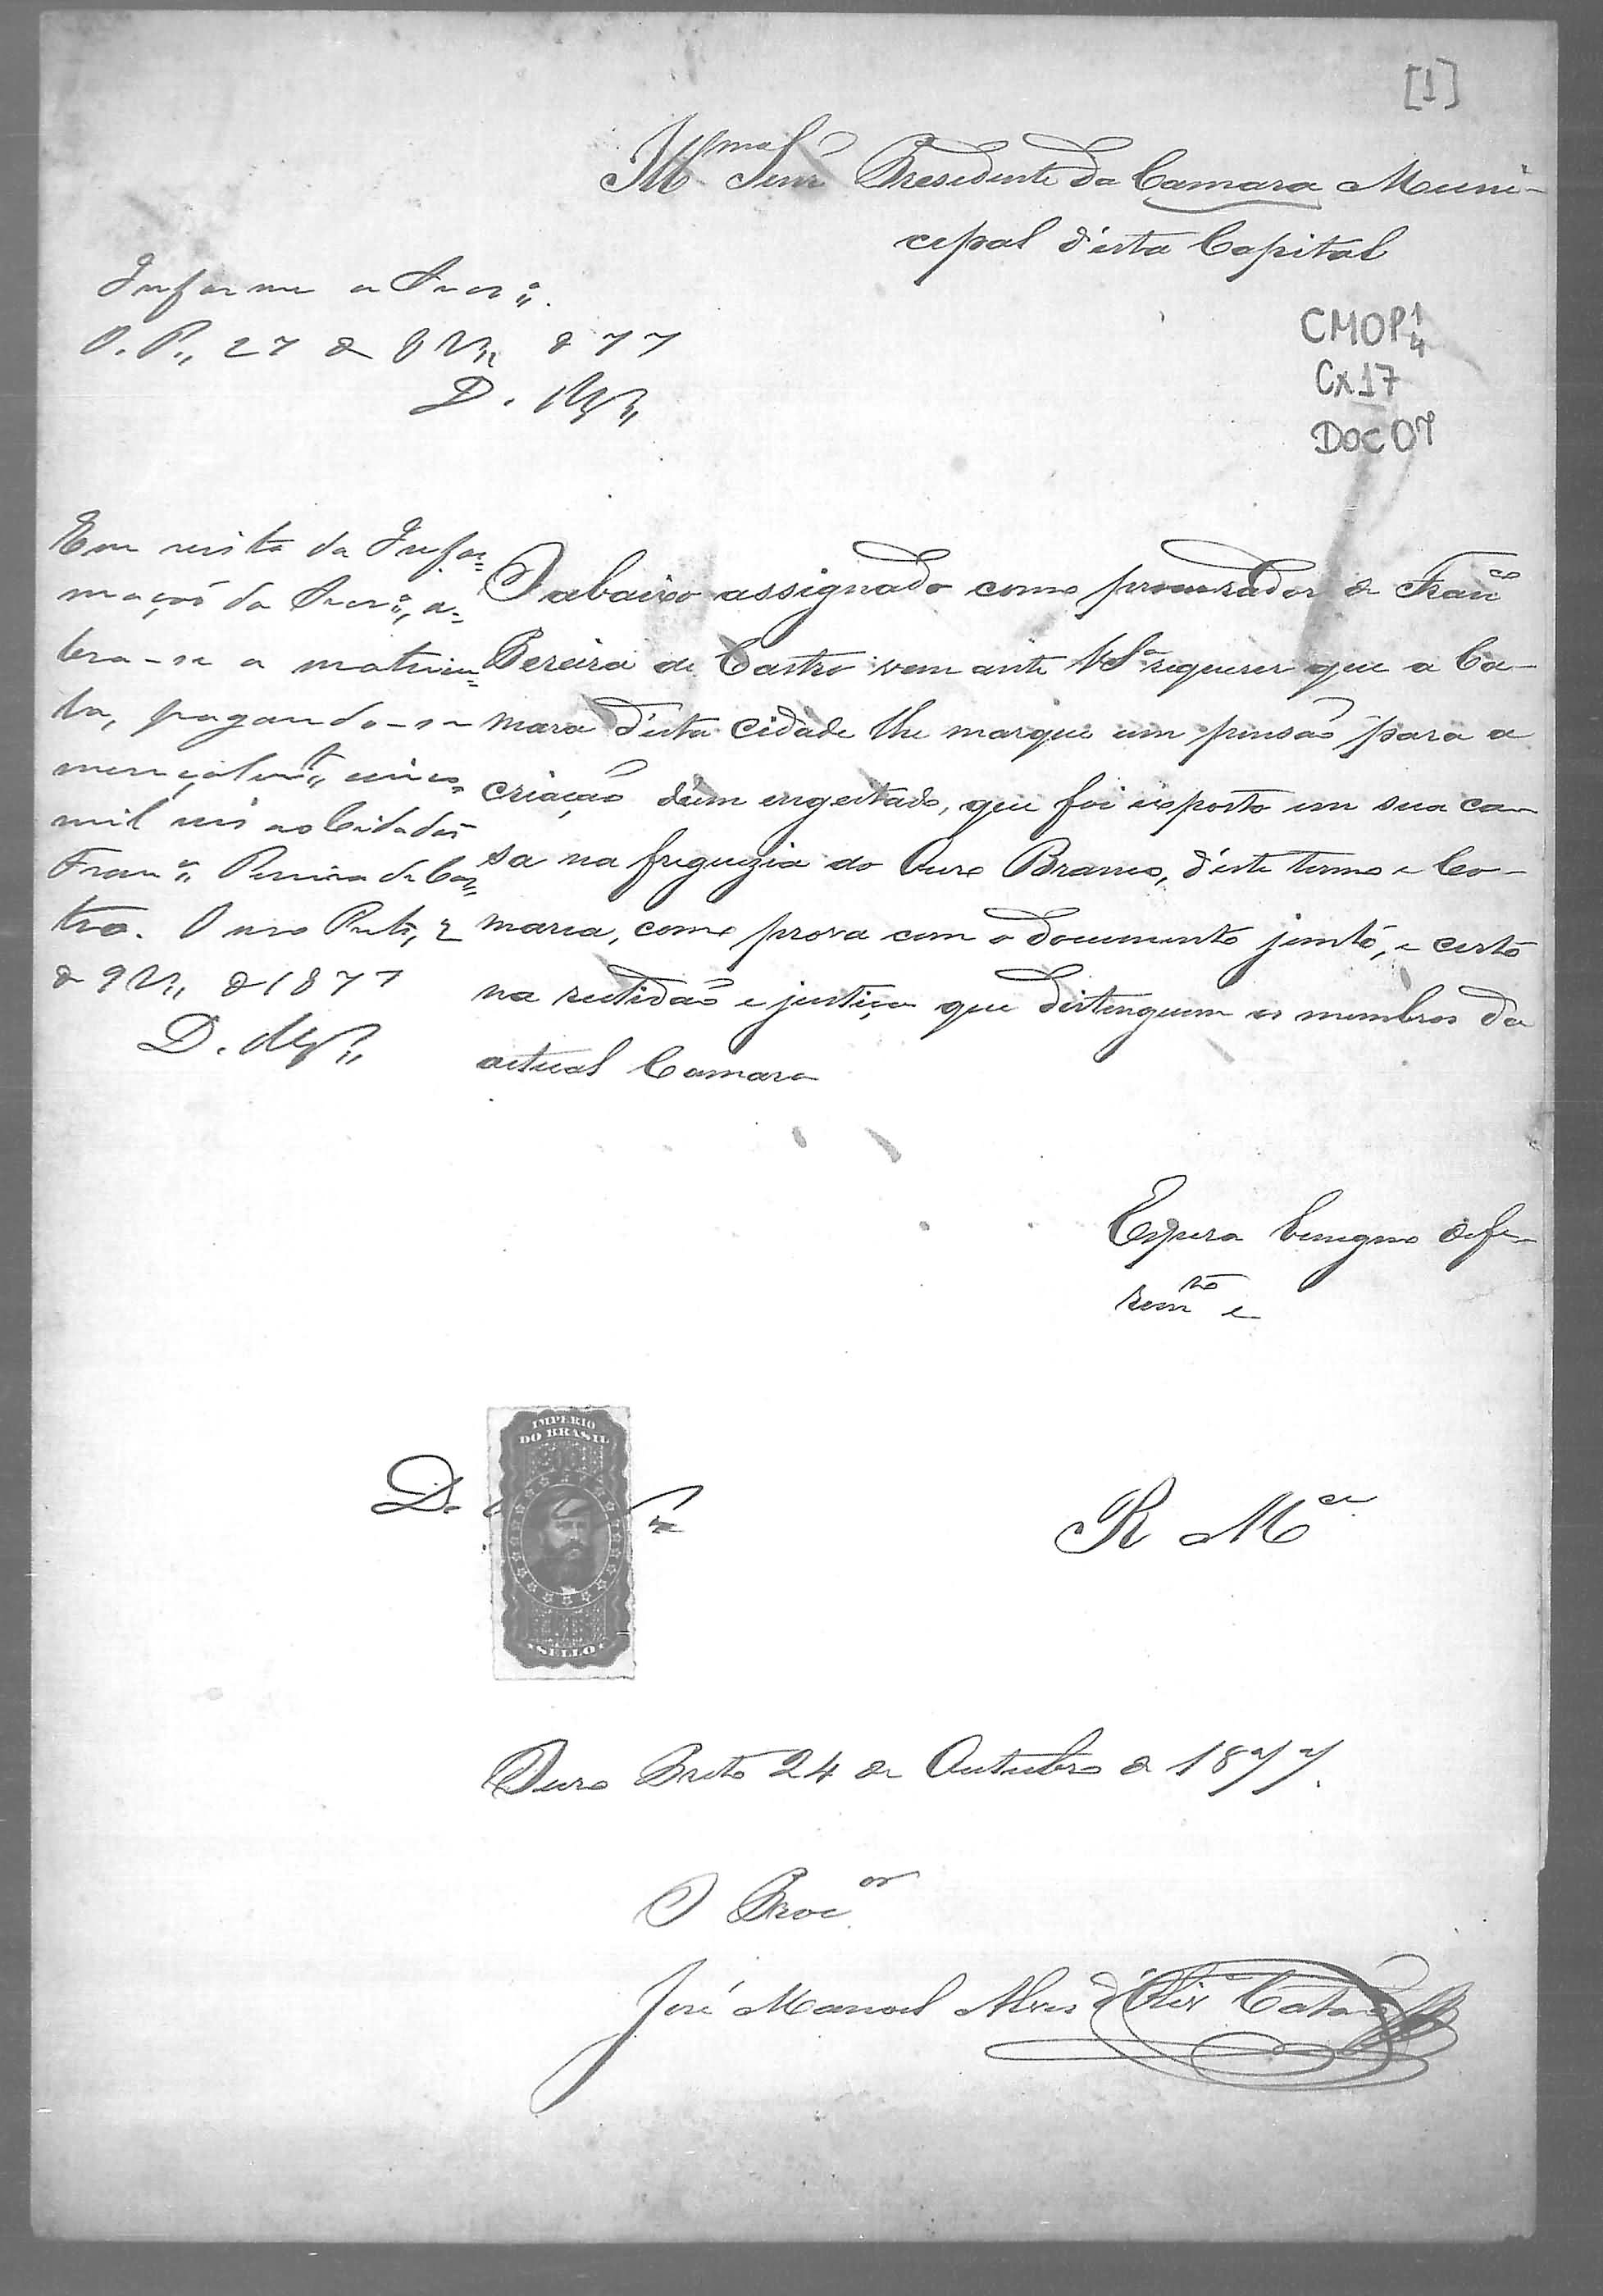 [1]
Illmo Senr Presidente da Camara Muni-
cipal d'esta Capital
Informe a Secr.ia
O. P., 27 de 8br. de 77
CMOP 1/4
Cx 17
DOC 07
Em vista da Infor=
mação da Secr.ia, a=
bra-se a matricu=
la, pagando-se
mençalmte cinco
mil reis ao Cidadão
Franco Pereira de Cas=
tro. Ouro Preto, 2
de 9br. de 1877
O abaixo assignado como procurador de Franco
Pereira de Castro vem ante VSa requerer que a Ca-
mara d'esta cidade lhe marque um pensão para a
criação d'um engeitado, que foi exposto em sua ca-
sa na freguezia do Ouro Branco, d'este termo e Co-
marca, como prova com o documento junto, e certo
na rectidão e justiça que destinguem os membros da
actual Camara
Espera benigno defe-
remto e
IMPERIO
DO BRASIL
SELLO
R Mce
Ouro Preto 24 de Outubro de 1877.
O Procor
José Manoel Alves d'Olivra